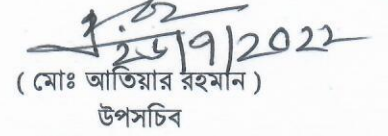 26/9/2022
( মোঃ আতিয়ার রহমান )
উপসচিব